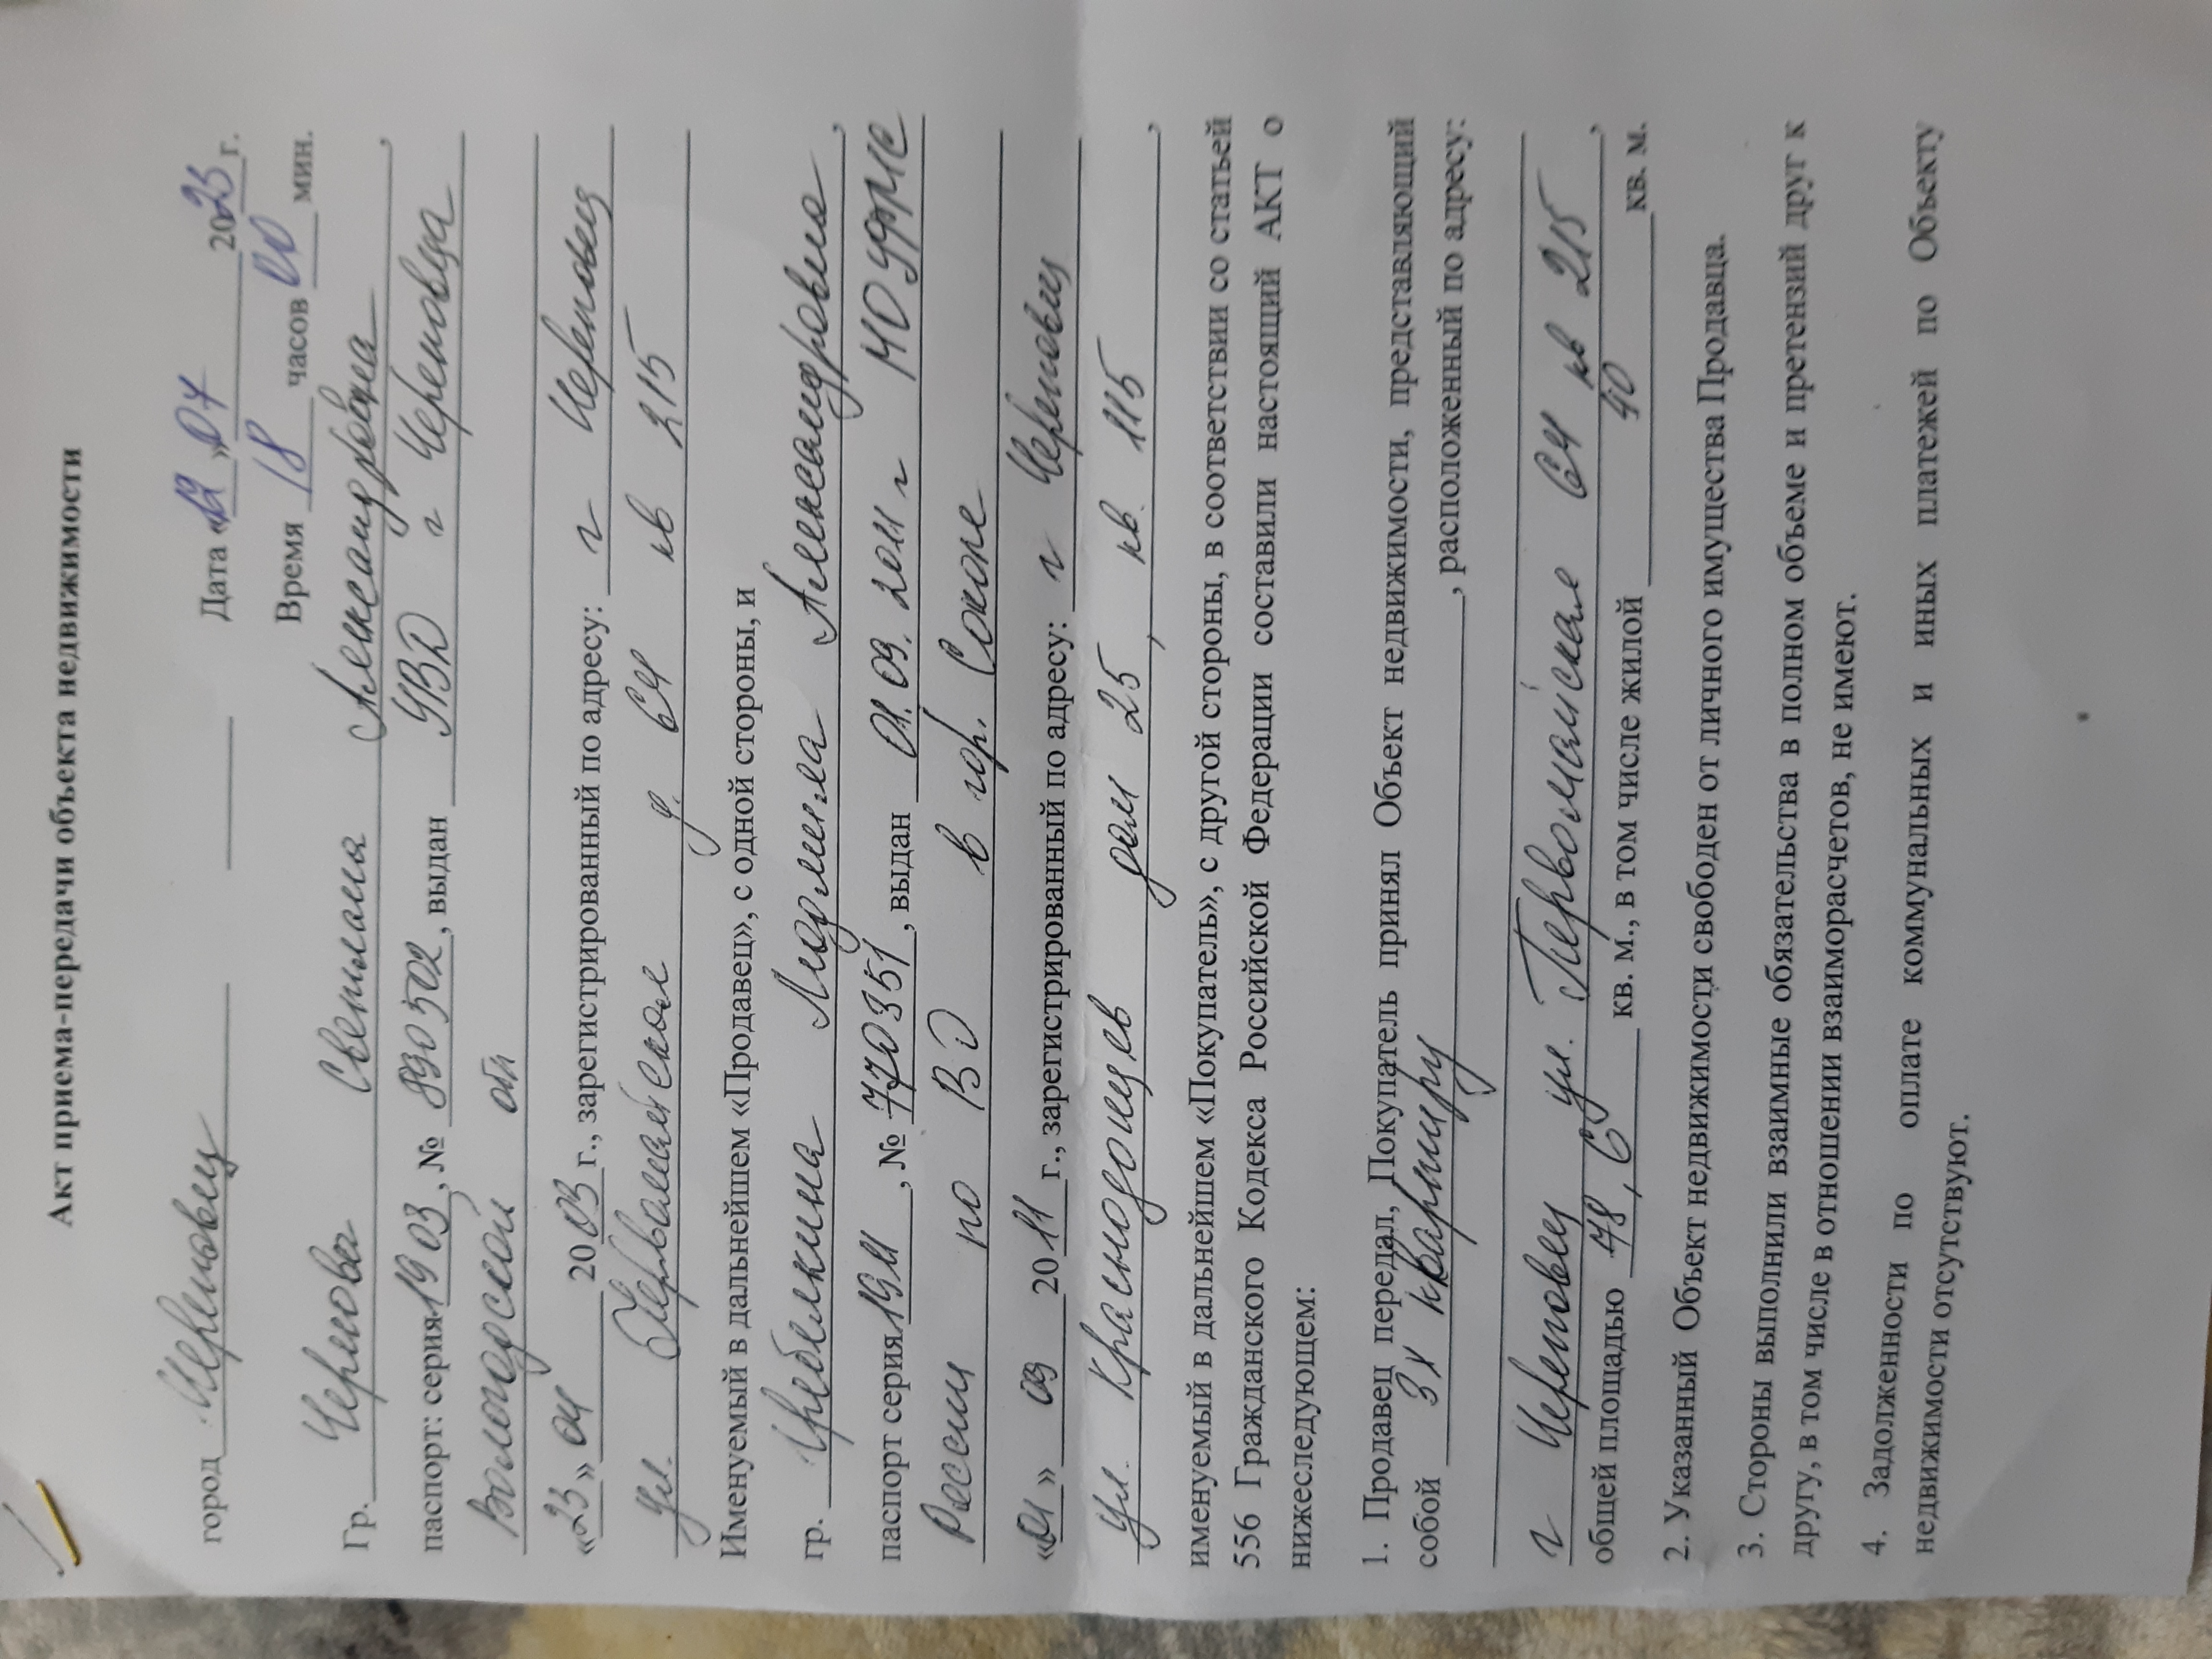 Акт приема-передачи объекта недвижимости
город Череповец Дата «12» 07 2023 г.
Время 18 часов 00 мин.
Гр. Чернова Светлана Александровна,
паспорт: серия 1903, № 890502, выдан УВД г Череповца
Вологодской обл
«23» 04 2003 г., зарегистрированный по адресу: г Череповец
ул. Первомайская д. 64 кв 215
Именуемый в дальнейшем «Продавец», с одной стороны, и
гр. Людмила Александровна,
паспорт серия 1911, № 770351, выдан 01.09.2011 г МО УФМС
России по ВО в гор. Соколе
«01» 09 2011 г., зарегистрированный по адресу: г Череповец
ул. Краснодонцев дом 25, кв. 115,
именуемый в дальнейшем «Покупатель», с другой стороны, в соответствии со статьей
556 Гражданского Кодекса Российской Федерации составили настоящий АКТ о
нижеследующем:
1. Продавец передал, Покупатель принял Объект недвижимости, представляющий
собой 3х квартиру, расположенный по адресу:
г Череповец ул. Первомайская 64 кв 215,
общей площадью 78,6 кв. м., в том числе жилой 40 кв. м.
2. Указанный Объект недвижимости свободен от личного имущества Продавца.
3. Стороны выполнили взаимные обязательства в полном объеме и претензий друг к
другу, в том числе в отношении взаиморасчетов, не имеют.
4. Задолженности по оплате коммунальных и иных платежей по Объекту
недвижимости отсутствуют.